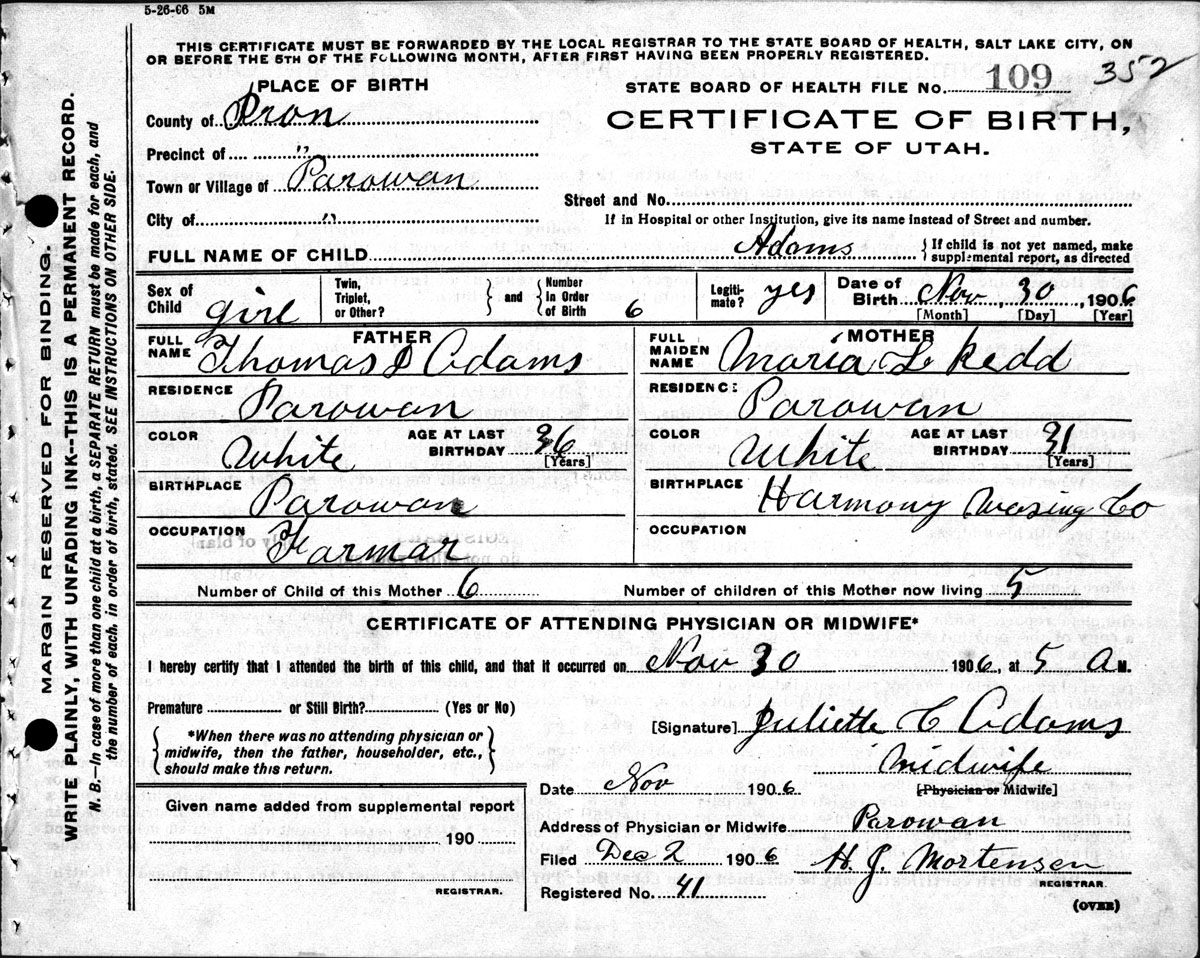 5-26-06 5M
THIS CERTIFICATE MUST BE FORWARDED BY THE LOCAL REGISTRAR TO THE STATE BOARD OF HEALTH, SALT LAKE CITY, ON
OR BEFORE THE 5TH OF THE FOLLOWING MONTH, AFTER FIRST HAVING BEEN PROPERLY REGISTERED.
352
PLACE OF BIRTH
STATE BOARD OF HEALTH FILE No. 109
County of Iron
CERTIFICATE OF BIRTH,
STATE OF UTAH.
Precinct of "
Town or Village of Parowan
Street and No.
City of "
If in Hospital or other Institution, give its name instead of Street and number.
FULL NAME OF CHILD Adams {If child is not yet named, make
supplemental report, as directed
Sex of Child girl
Twin, Triplet, or Other? } and { Number In Order of Birth 6
Legitimate? yes
Date of Birth Nov 30, 1906
[Month] [Day] [Year]
FATHER
FULL NAME Thomas D Adams
MOTHER
FULL MAIDEN NAME Maria L Redd
RESIDENCE Parowan
RESIDENCE Parowan
COLOR White AGE AT LAST BIRTHDAY 36 [Years]
COLOR White AGE AT LAST BIRTHDAY 31 [Years]
BIRTHPLACE Parowan
BIRTHPLACE Harmony Wasing Co
OCCUPATION Farmar
OCCUPATION
Number of Child of this Mother 6 Number of children of this Mother now living 5
CERTIFICATE OF ATTENDING PHYSICIAN OR MIDWIFE*
I hereby certify that I attended the birth of this child, and that it occurred on Nov 30 1906, at 5 A M.
Premature or Still Birth? (Yes or No)
[Signature] Juliette C Adams
*When there was no attending physician or
midwife, then the father, householder, etc.,
should make this return.
Midwife
[Physician or Midwife]
Date Nov 1906
Given name added from supplemental report
190
REGISTRAR.
Address of Physician or Midwife Parowan
Filed Dec 2 1906 H. J. Mortensen
REGISTRAR.
Registered No. 41
(OVER)
MARGIN RESERVED FOR BINDING.
WRITE PLAINLY, WITH UNFADING INK--THIS IS A PERMANENT RECORD.
N. B.—In case of more than one child at a birth, a SEPARATE RETURN must be made for each, and
the number of each, in order of birth, stated. SEE INSTRUCTIONS ON OTHER SIDE.